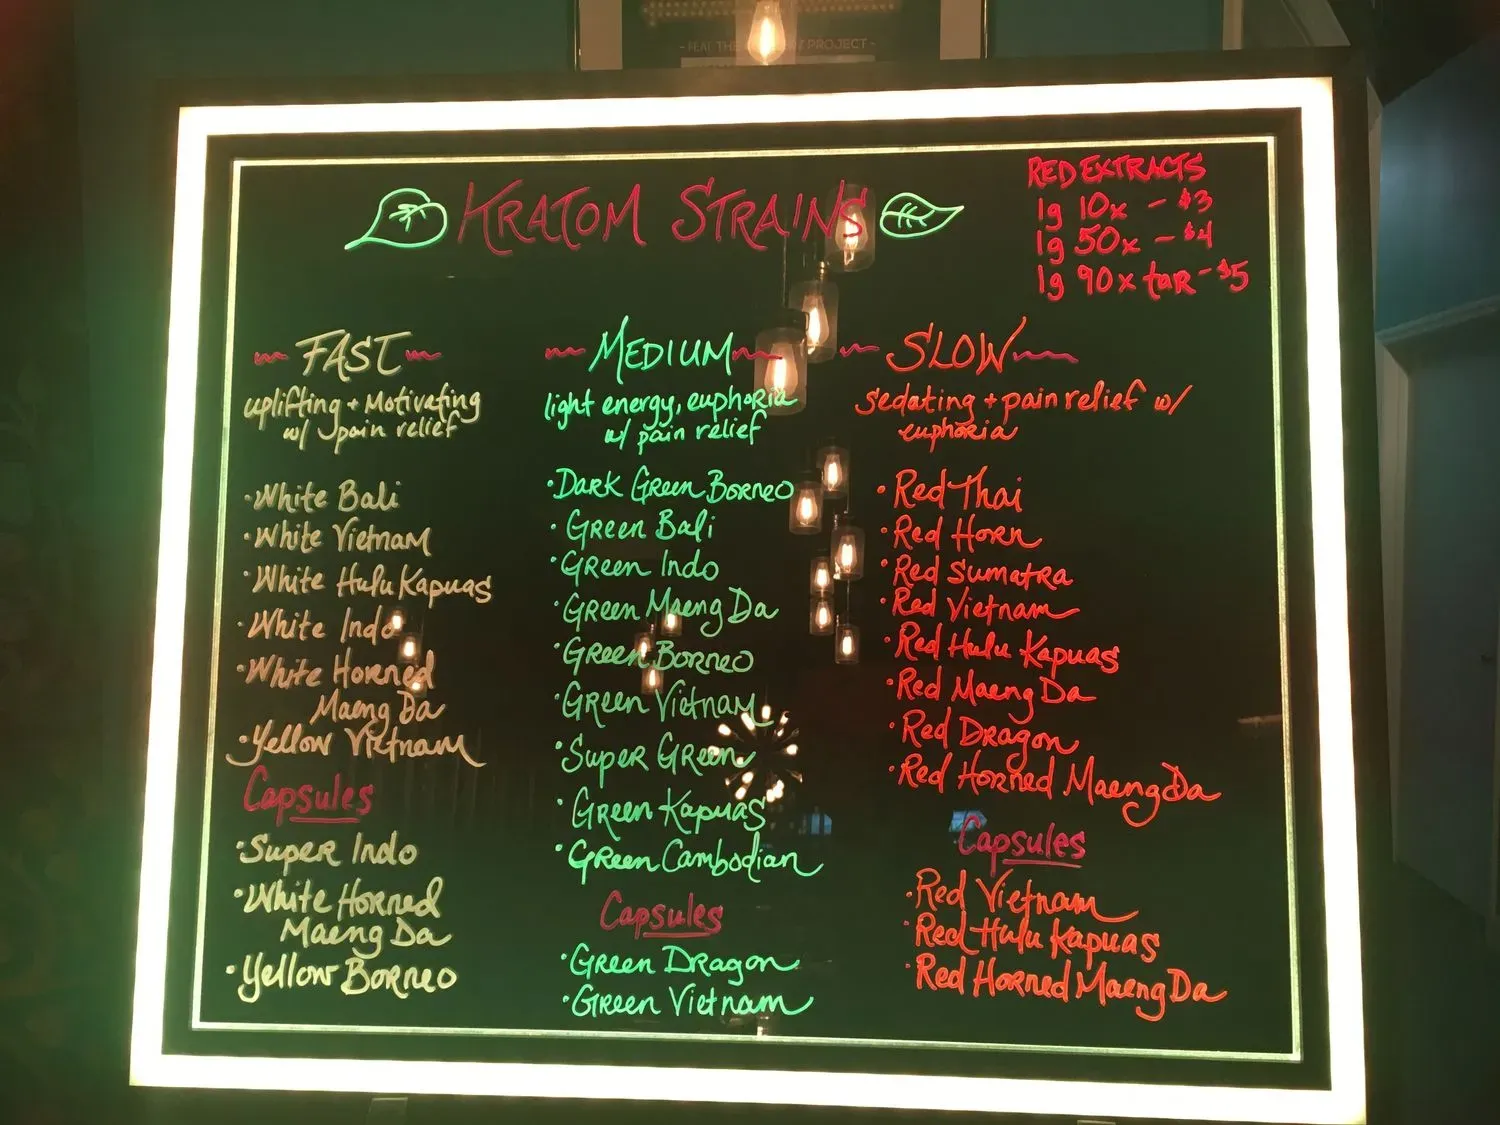 - FEAT THE PROJECT -
KRATOM STRAINS
RED EXTRACTS
1g 10x - $3
1g 50x - $4
1g 90x taR - $5
FAST
uplifting + Motivating
w/ pain relief
• White Bali
• White Vietnam
• White Hulu Kapuas
• White Indo
• White Horned
Maeng Da
• Yellow Vietnam
Capsules
• Super Indo
• White Horned
Maeng Da
• Yellow Borneo
MEDIUM
light energy, euphoria
w/ pain relief
• Dark Green Borneo
• Green Bali
• Green Indo
• Green Maeng Da
• Green Borneo
• Green Vietnam
• Super Green
• Green Kapuas
• Green Cambodian
Capsules
• Green Dragon
• Green Vietnam
SLOW
sedating + pain relief w/
euphoria
• Red Thai
• Red Horn
• Red Sumatra
• Red Vietnam
• Red Hulu Kapuas
• Red Maeng Da
• Red Dragon
• Red Horned Maeng Da
Capsules
• Red Vietnam
• Red Hulu Kapuas
• Red Horned Maeng Da